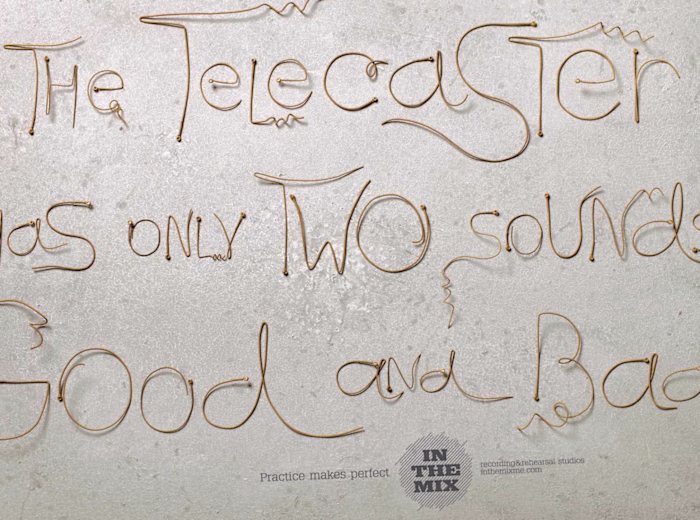 THe TeLecaSTer
has ONLY TWO soUNds
Good aNd Bad
Practice makes perfect
IN
THE
MIX
recording&rehearsal studios
inthemixme.com